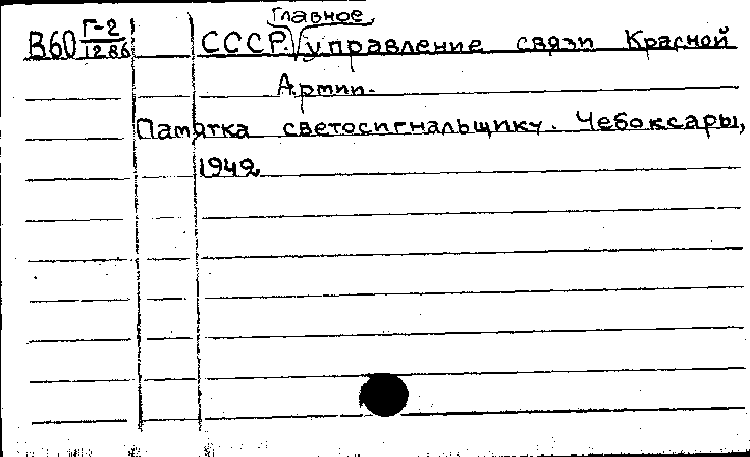 В60 Г-2/12.86 СССР. Главное управление связи Красной
Армии.
Памятка светосигнальщику. Чебоксары,
1942